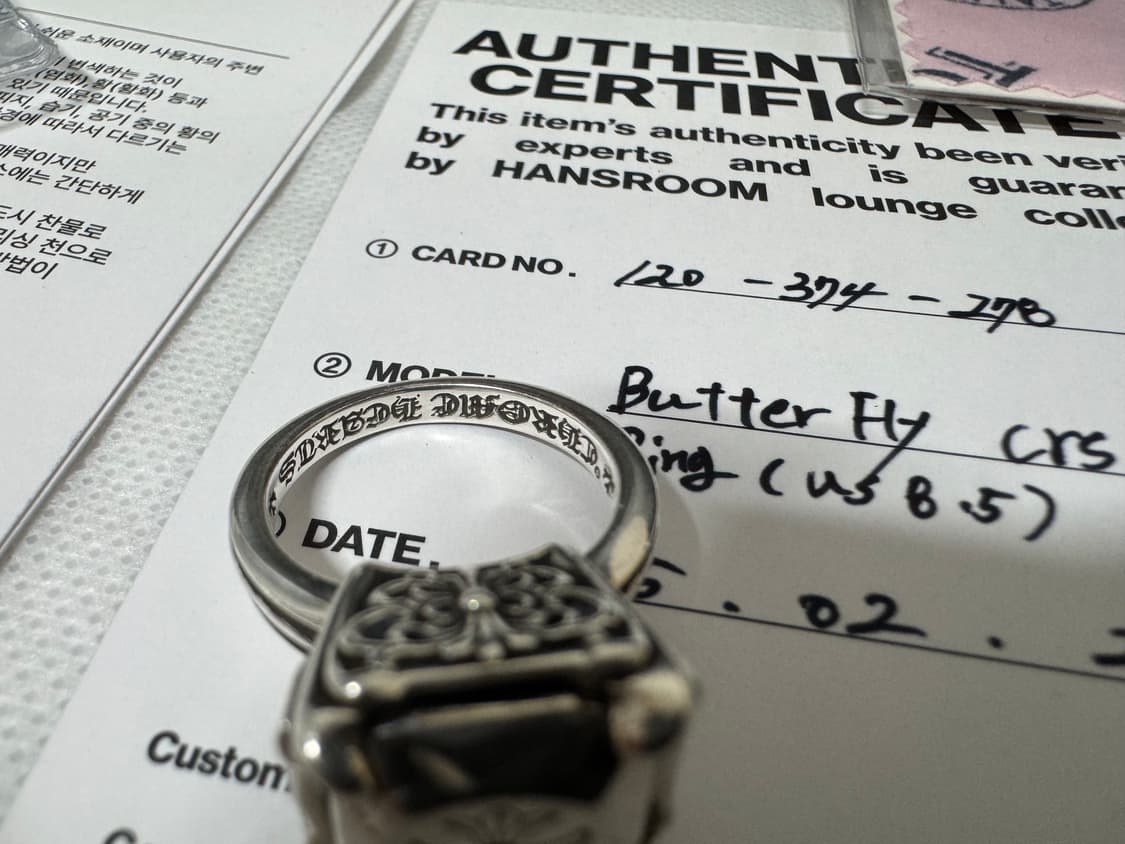 쉬운 소재이며 사용자의 주변
변색하는 것이
(염화) 황(황화) 등과
있기 때문입니다.
습기, 공기 중의 황의
에 따라서 다르기는
매력이지만
에는 간단하게
시 찬물로
천으로
방법이
AUTHENT
CERTIFICATE
This item's authenticity been veri
by experts and is guaran
by HANSROOM lounge colle
① CARD NO. 120-374-278
② MODEL Butter Fly crs
Ring (US 8.5)
DATE. 5.02.
Custom